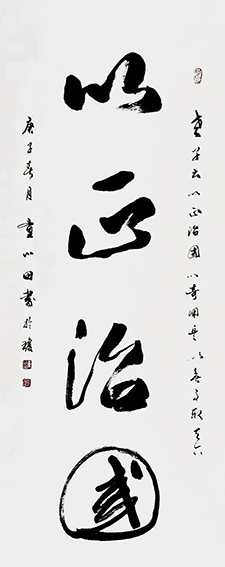 老子云以正治国以奇用兵以无事取天下
以正治国
庚子春月童心田书於